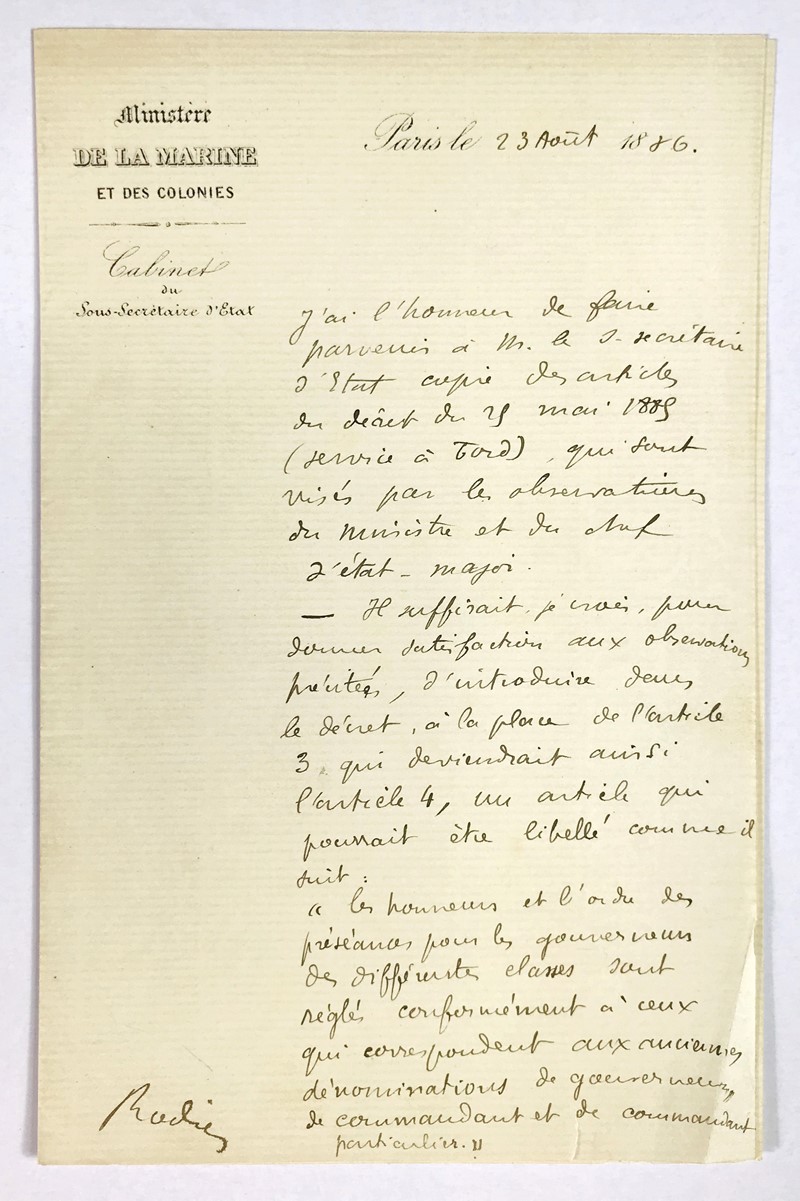 Ministère
DE LA MARINE
ET DES COLONIES
Cabinet
du
Sous-Secrétaire d'Etat
Paris le 23 Août 1886.
J'ai l'honneur de faire
parvenir à M. le S-secrétaire
d'Etat copie des articles
du décret du mai 1885
(service à bord), qui sont
visés par les observations
du ministre et du chef
d'état-major.
— Il suffirait, je crois, pour
donner satisfaction aux observations
précitées, d'introduire dans
le décret, à la place de l'article
3 qui deviendrait ainsi
l'article 4, un article qui
pourrait être libellé comme il
suit :
« les honneurs et l'ordre des
préséances pour les gouverneurs
des différentes classes sont
réglés conformément à ceux
qui correspondent aux anciennes
dénominations de gouverneur,
de commandant et de commandant
particulier. »